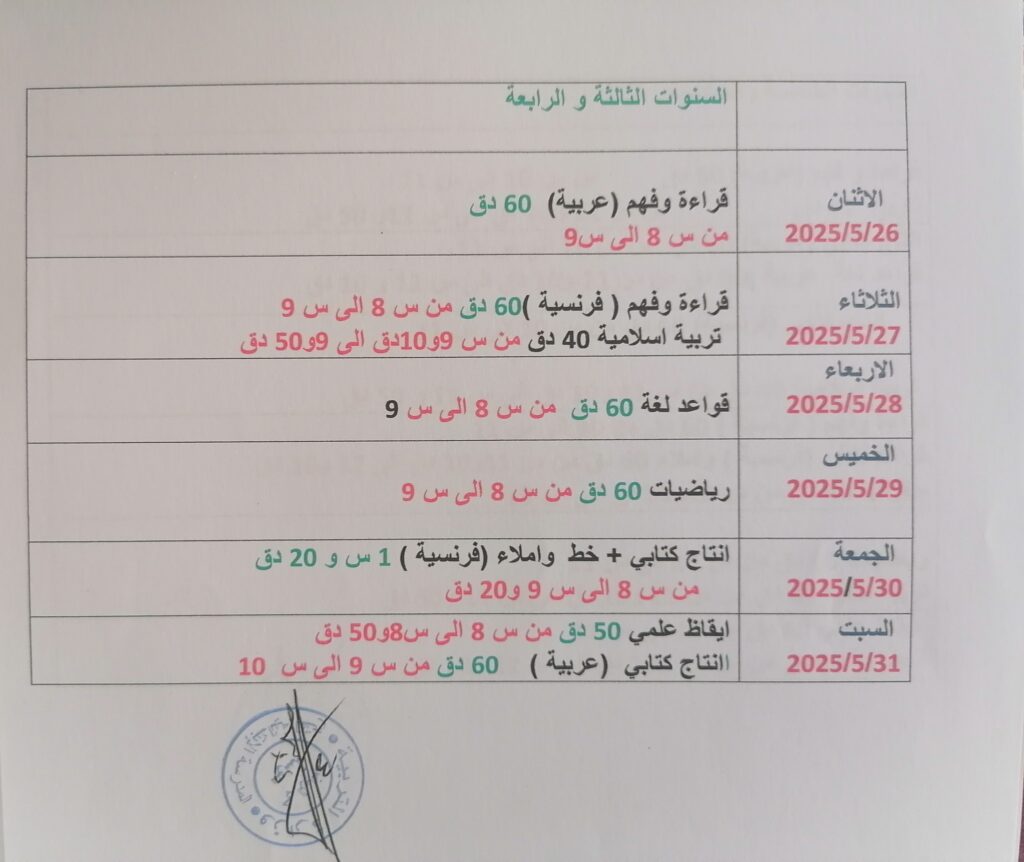 السنوات الثالثة و الرابعة
الاثنان
2025/5/26
قراءة وفهم (عربية) 60 دق
من س 8 الى س9
الثلاثاء
2025/5/27
قراءة وفهم ( فرنسية )60 دق من س 8 الى س 9
تربية اسلامية 40 دق من س 9و10دق الى 9و50 دق
الاربعاء
2025/5/28
قواعد لغة 60 دق من س 8 الى س 9
الخميس
2025/5/29
رياضيات 60 دق من س 8 الى س 9
الجمعة
2025/5/30
انتاج كتابي + خط واملاء (فرنسية ) 1 س و 20 دق
من س 8 الى س 9 و20 دق
السبت
2025/5/31
ايقاظ علمي 50 دق من س 8 الى س8و50 دق
اانتاج كتابي (عربية ) 60 دق من س 9 الى س 10